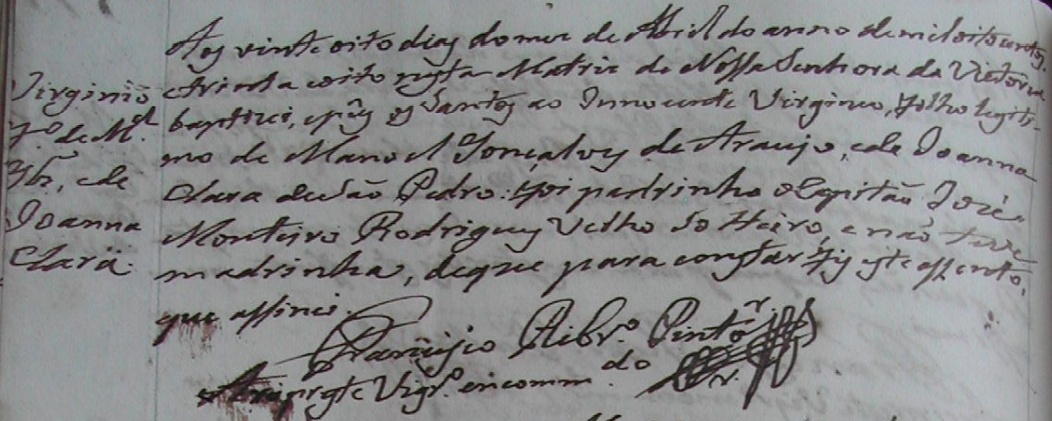 Aos vinte oito dias do mez de Abril do anno de mil oito centos
Virginio
e trinta e oito nesta Matriz de Nossa Senhora da Victoria
fo. de Mel.
baptizei, e puz os Santos ao Innocente Virginio, filho legiti-
mo de Manoel Gonçalves de Araujo, e de Joanna
e de
Clara de São Pedro: foi padrinho o Capitão José
Joanna
Monteiro Rodrigues Velho solteiro, e não teve
Clara.
madrinha, de que para constar fiz este assento,
que assinei.
Francisco Ribro. Pinto
Vigro. encommdo